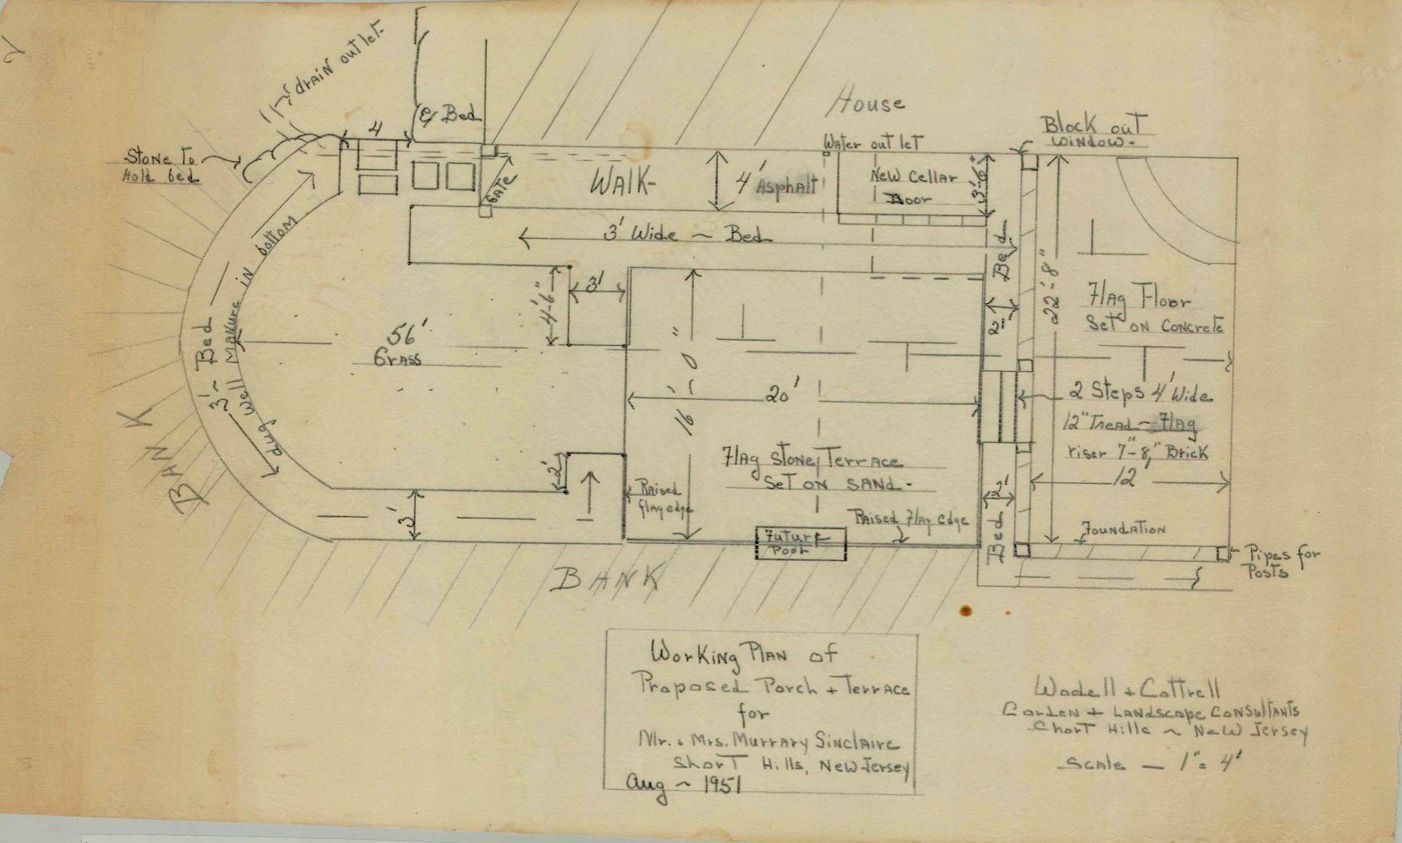 drain outlet-
4
Bed
House
Block out
Window-
Water outlet
Stone To
Hold bed
GATE
WALK-
4' Asphalt
New Cellar
Door
3'-6"
3' Wide ~ Bed
Bed
2'
22'-8"
Flag Floor
Set on Concrete
3' ~ Bed
dug well manure in bottom
4'-6"
3'
56'
Grass
16'-0"
20'
2 Steps 4' Wide
12" Tread ~ Flag
riser 7"-8" Brick
12'
BANK
Flag Stone Terrace
Set on Sand-
2'
3'
Raised
flag edge
Raised Flag edge
Future
Pool
2'
Bed
Foundation
Pipes for
Posts
BANK
Working Plan of
Proposed Porch + Terrace
for
Mr. + Mrs. Murrary Sinclaire
Short Hills, New Jersey
Aug ~ 1951
Wodell + Cottrell
Garden + Landscape Consultants
Short Hills ~ New Jersey
Scale — 1" = 4'